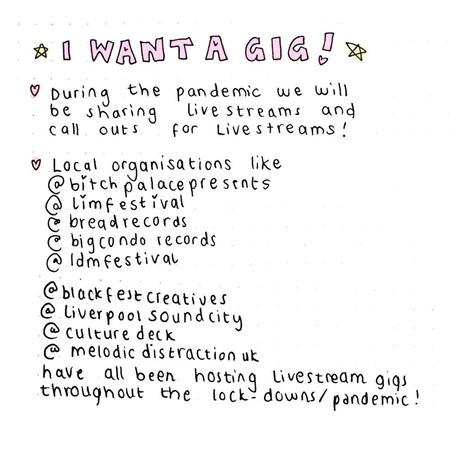 I WANT A GIG!
During the pandemic we will
be sharing livestreams and
call outs for livestreams!
Local organisations like
@bitchpalacepresents
@limfestival
@breadrecords
@bigcondo records
@ldmfestival
@blackfestcreatives
@liverpoolsoundcity
@culture deck
@melodic distraction uk
have all been hosting livestream gigs
throughout the lock-downs/pandemic!